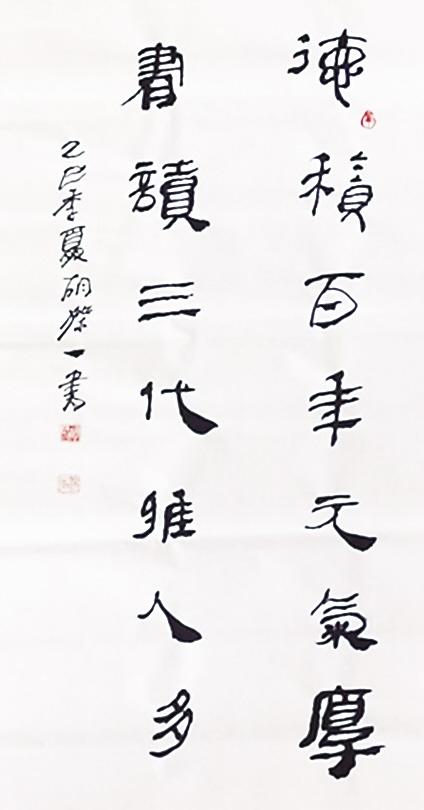 德積百年元氣厚
書讀三代雅人多
乙巳季夏胡榮一書